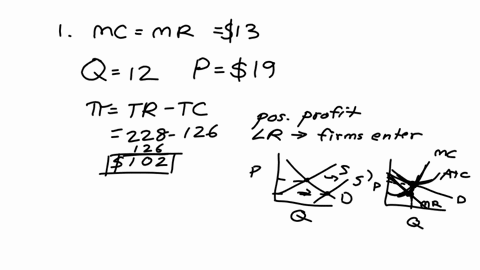 1. MC = MR = $13
Q = 12 P = $19
π = TR - TC
= 228 - 126
126
$102
pos. profit
LR → firms enter
P S S' D Q
P MC ATC D MR Q